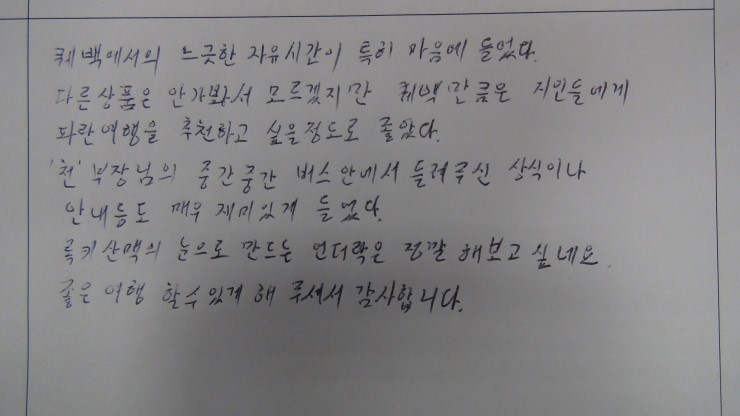 퀘백에서의 느긋한 자유시간이 특히 마음에 들었다.
다른상품은 안가봐서 모르겠지만 퀘백만큼은 지인들에게
파란여행을 추천하고 싶을정도로 좋았다.
'천'부장님의 중간중간 버스안에서 들려주신 상식이나
안내등도 매우 재미있게 들었다.
록키산맥의 눈으로 만드는 언더락은 정말 해보고 싶네요.
좋은 여행 할수있게 해 주셔서 감사합니다.